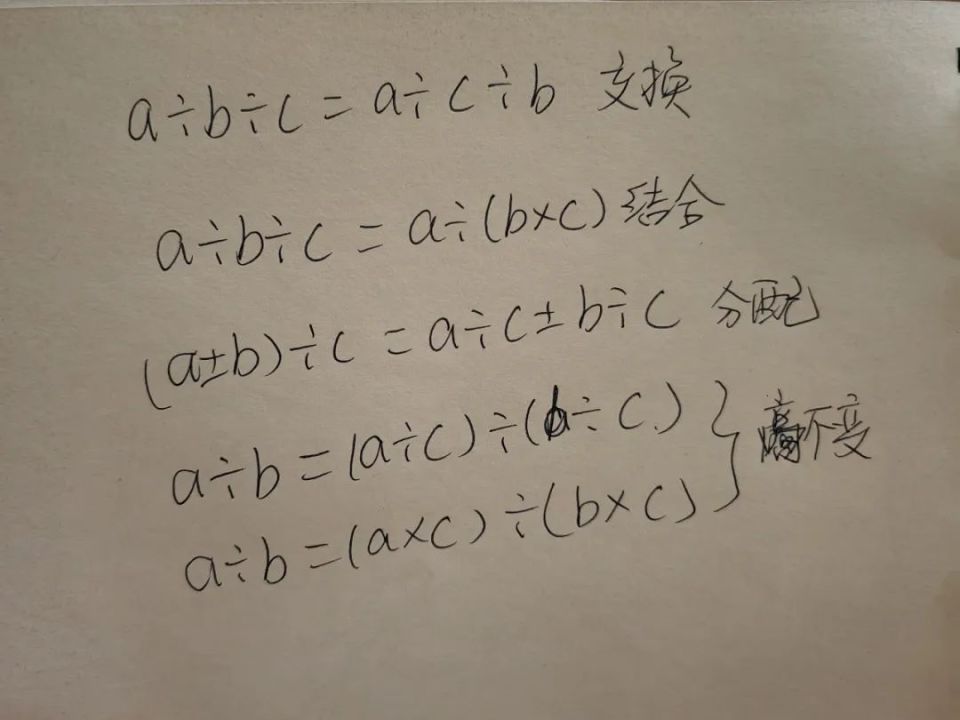 a÷b÷c=a÷c÷b 交换
a÷b÷c=a÷(b×c)结合
(a±b)÷c=a÷c±b÷c 分配
a÷b=(a÷c)÷(b÷c)
a÷b=(a×c)÷(b×c)
商不变